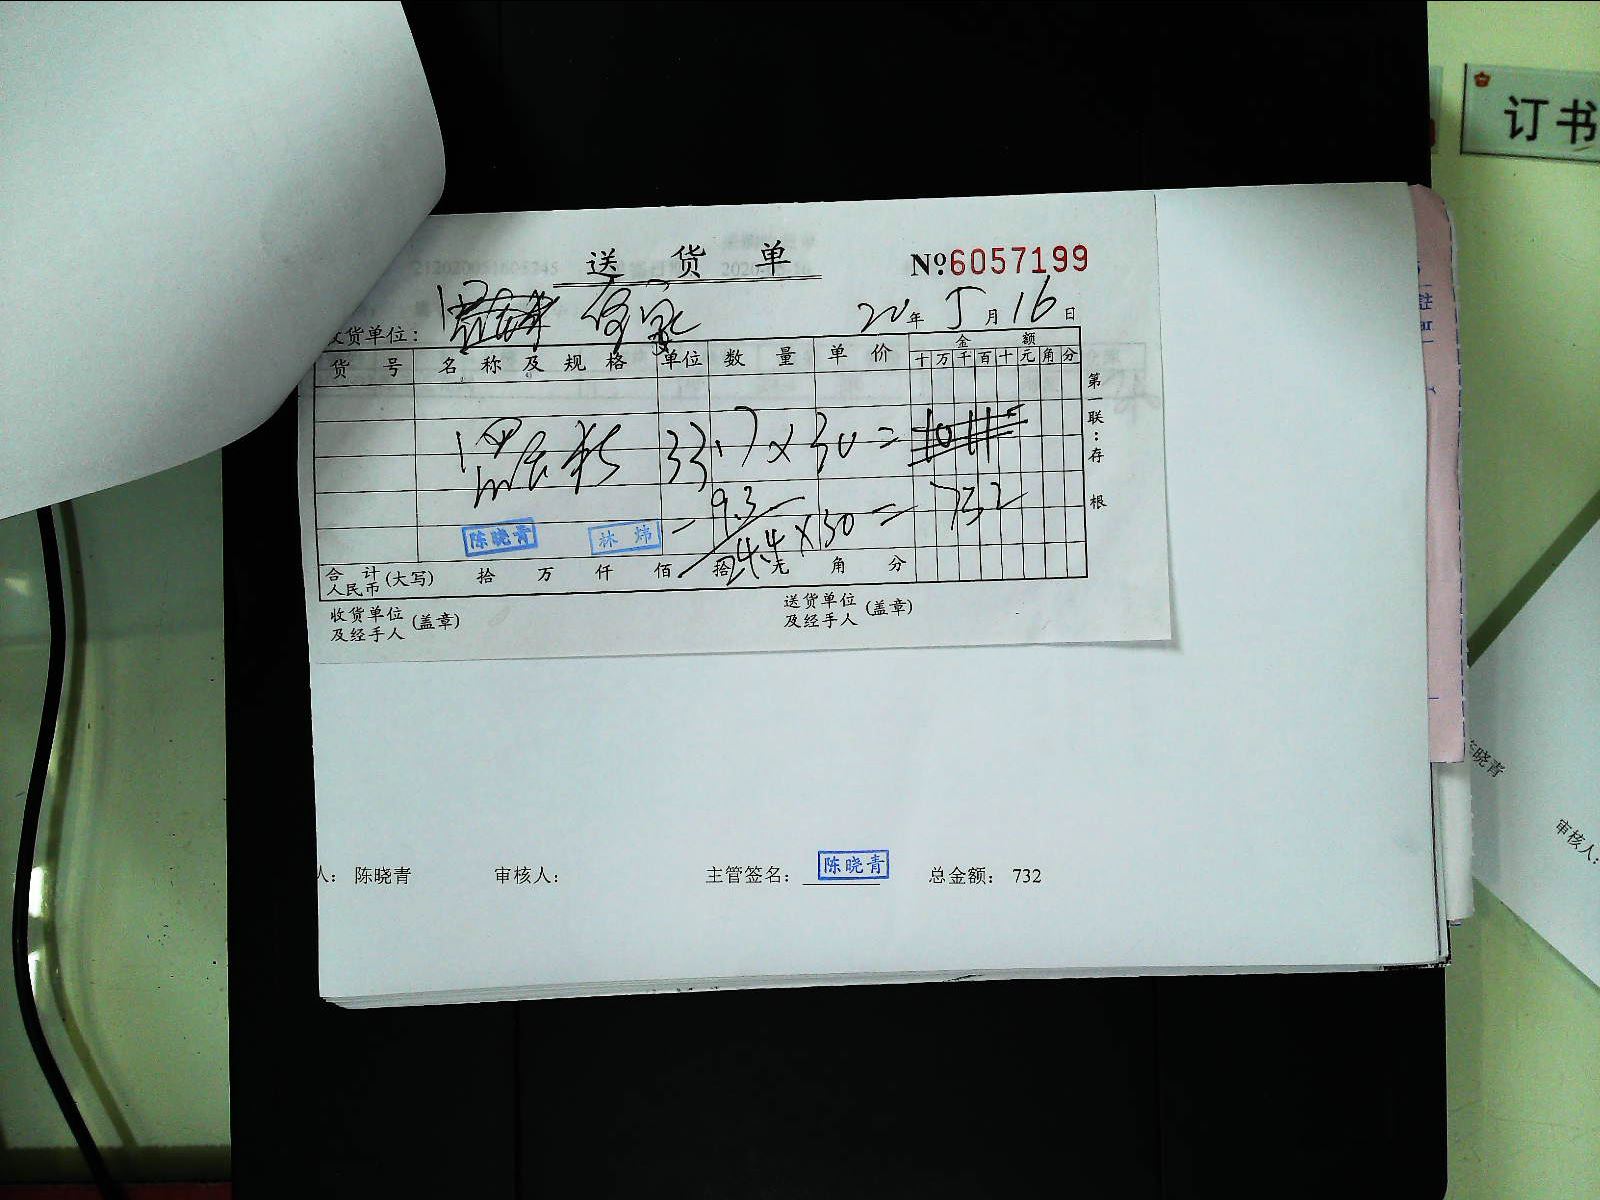 订书
送货单
№6057199
收货单位:
20年5月16日
货号 名称及规格 单位 数量 单价 金额
十万千百十元角分
33.7×30=1011
-9.3
24.4×30=732
陈晓青 林炜
合计人民币(大写) 拾 万 仟 佰 拾 元 角 分
收货单位及经手人(盖章) 送货单位及经手人(盖章)
第一联:存根
人: 陈晓青 审核人: 主管签名: 陈晓青 总金额: 732
陈晓青
审核人: